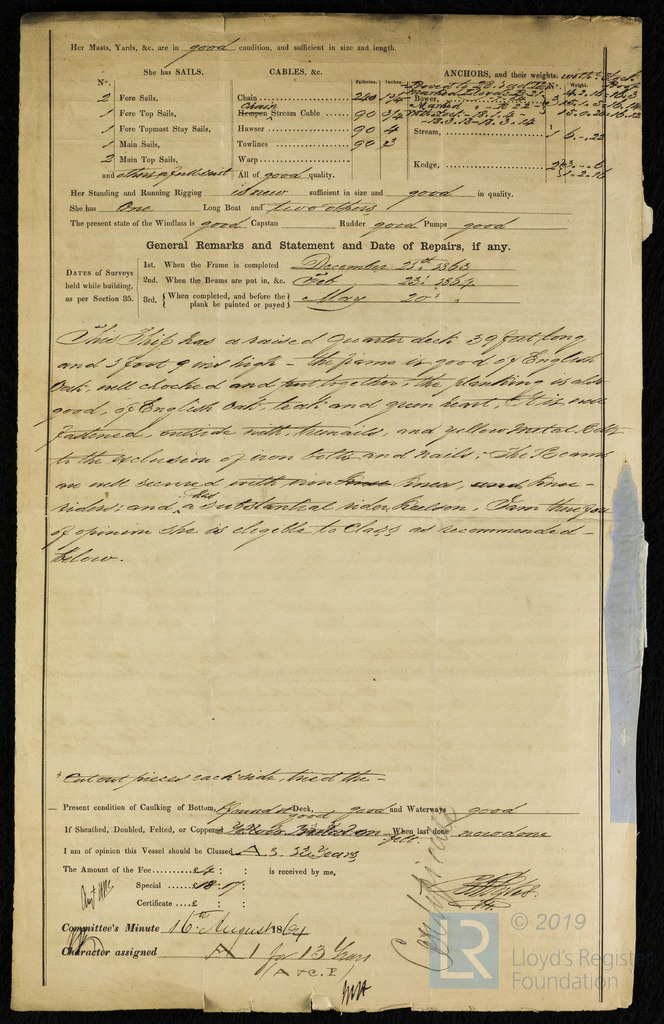 Her Masts, Yards, &c. are in good condition, and sufficient in size and length.
She has SAILS.
CABLES, &c.
Fathoms. Inches.
ANCHORS, and their weights.
Nº. Weight.
Nº.
2 Fore Sails,
1 Fore Top Sails,
1 Fore Topmast Stay Sails,
1 Main Sails,
2 Main Top Sails,
and others
Chain
Chain
Hempen Stream Cable 90 3/4
Hawser 90 4
Towlines 90 3
Warp
All of good quality.
Bower,
Stream, 1 6
Kedge,
Her Standing and Running Rigging is new sufficient in size and good in quality.
She has One Long Boat and two others
The present state of the Windlass is good Capstan Rudder good Pumps good
General Remarks and Statement and Date of Repairs, if any.
DATES of Surveys held while building, as per Section 35.
1st. When the Frame is completed December 21st 1863
2nd. When the Beams are put in, &c. Feb 23: 1864
3rd. { When completed, and before the plank be painted or payed } May 20
This Ship has a raised Quarter deck 39 feet long
and 1 foot 9 ins high - the frame is good of English
Oak, well chocked and put together, the planking is also
good, of English Oak, teak and green heart, It is well
fastened, outside with treenails, and yellow metal Bolts
to the exclusion of iron bolts and nails, The Beams
are well secured with iron knees, and knee
riders; and has a substantial rider Keelson, I am therefore
of opinion she is eligible to Class as recommended
below.
Cut out pieces each side, tried the
Present condition of Caulking of Bottom, found good Deck, good and Waterways good
If Sheathed, Doubled, Felted, or Coppered Yellow Metal on felt When last done new done
I am of opinion this Vessel should be Classed A 1. 13 Years
The Amount of the Fee £4 : : is received by me,
Special
Certificate £ : :
Certificate
Committee's Minute 16th August 1864
Character assigned A 1 for 13 Years
A & C. P
LR
© 2019
Lloyd's Register
Foundation